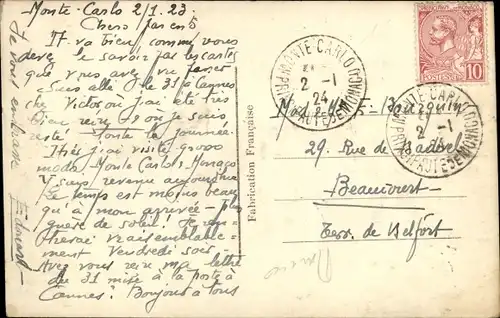 Monte-Carlo 2/1.23
Chers parents
It va bien, comme vous
devez le savoir par les cartes
que vous avez du
allé le 31 à Cannes
chez Victor où j'ai été très
bien reçu et où je suis
resté toute la journée.
j'ai visité grosso
modo Monte Carlo & Monaco
revenu aujourd'hui
Le temps est moins beau
qu'à mon arrivée - plus
guère de soleil! Je
vraisemblable-
ment Vendredi soir
Avez vous reçu ma lettre
du 31 mise à la poste à
Cannes? Bonjour à tous
Je vous embrasse
Edouard
Fabrication Française
MONTE-CARLO
2 -1
24
PRINCIPAUTE DE MONACO
MONTE-CARLO
2 -1
PRINCIPAUTE DE MONACO
POSTES
10
Bourquin
29 Rue de Badevel
Beaucourt
Terr. de Belfort